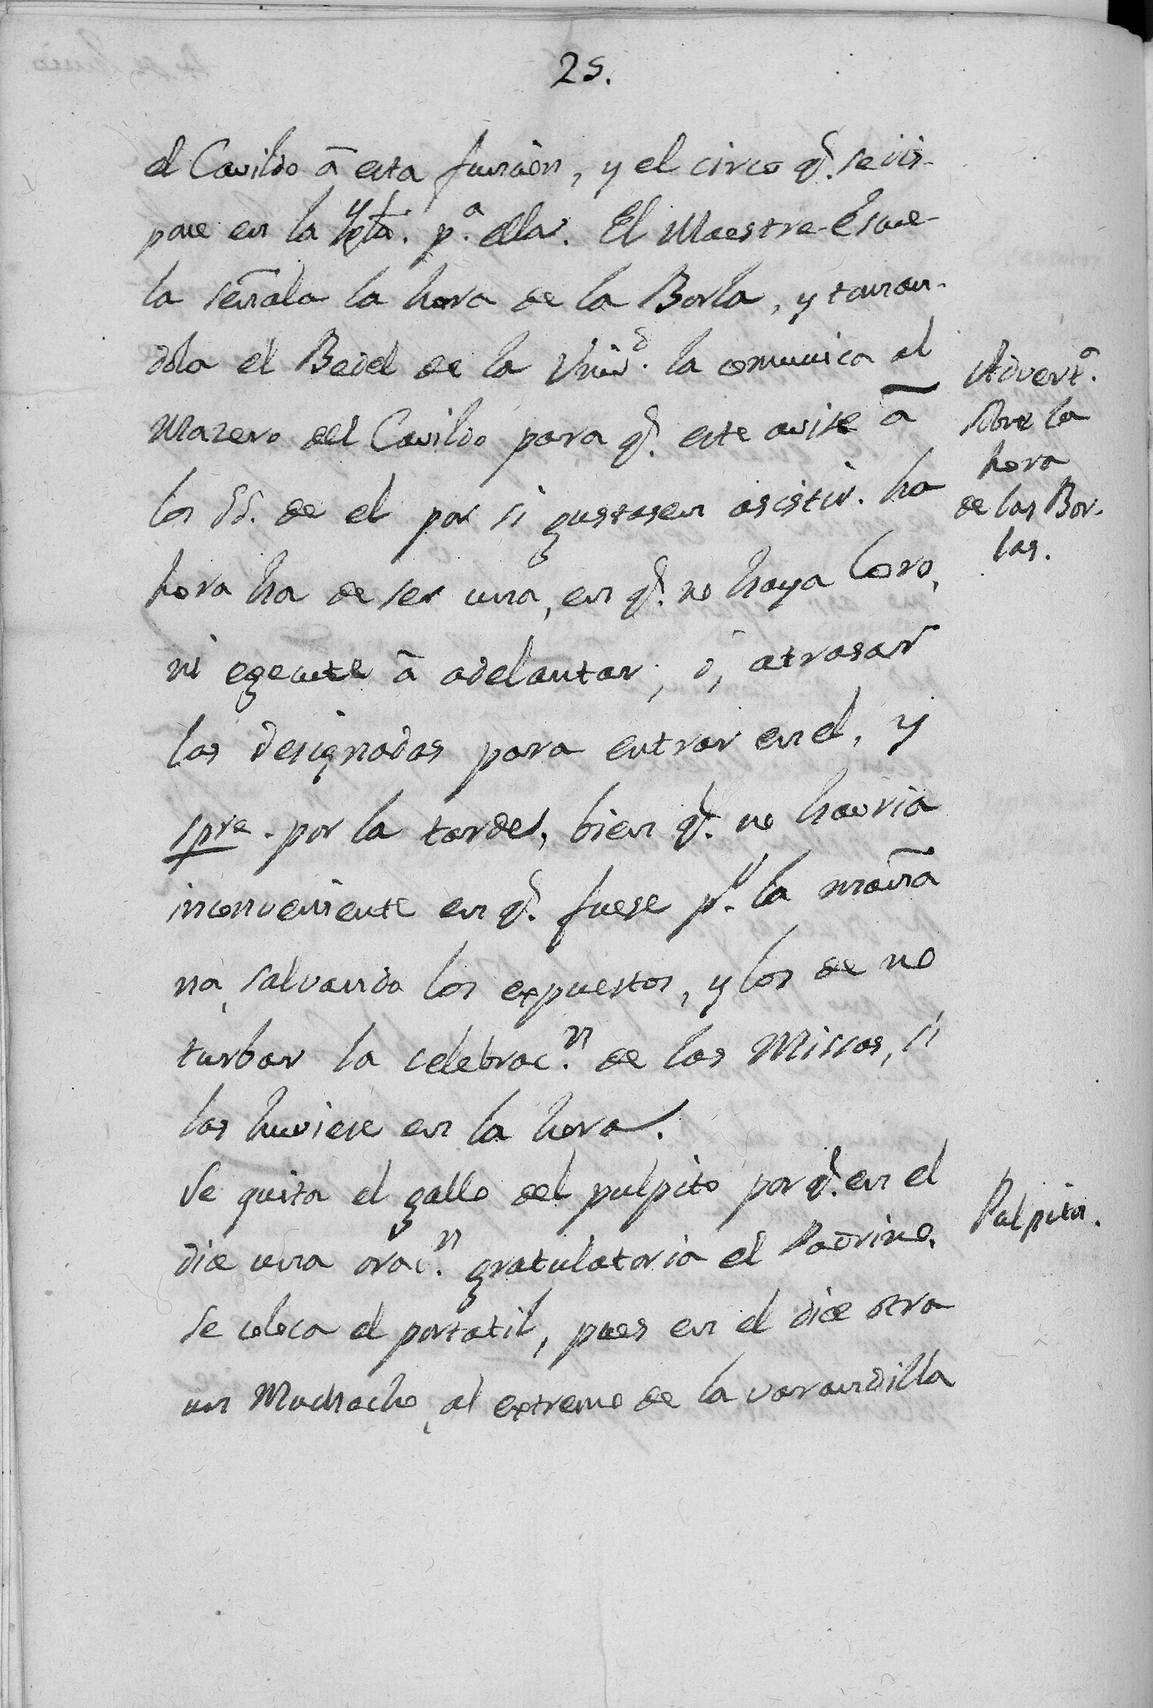 25.
el Cavildo â esta funcion, y el circo q.̃ se dis-
pone en la Ygła. p.ª ella. El Maestre-Escue-
la señala la hora de la Borla, y toman-
dola el Bedel de la Univ.ᵈ la comunica al
Mazero del Cavildo para q.̃ este avise â
los SS. de el por si gustasen asistir. La
hora ha de ser una, en q.̃ no haya Coro,
ni egecute â adelantar, ó, atrasar
las designadas para entrar en el, y
spre. por la tarde, bien q.̃ no havria
inconveniente en q.̃ fuese p.ʳ la maña
na, salvando los expuestos, y los de no
turbar la celebrac.ⁿ de las Missas, si
las huviese en la hora.
Se quita el gallo del pulpito por q.̃ en el
dice una orac.ⁿ gratulatoria el Padrino.
Se coloca el portatil, pues en el dice otra
un Muchacho, al extremo de la varandilla
Advert.ª
sobre la
hora
de las Bor-
las.
Pulpitos.